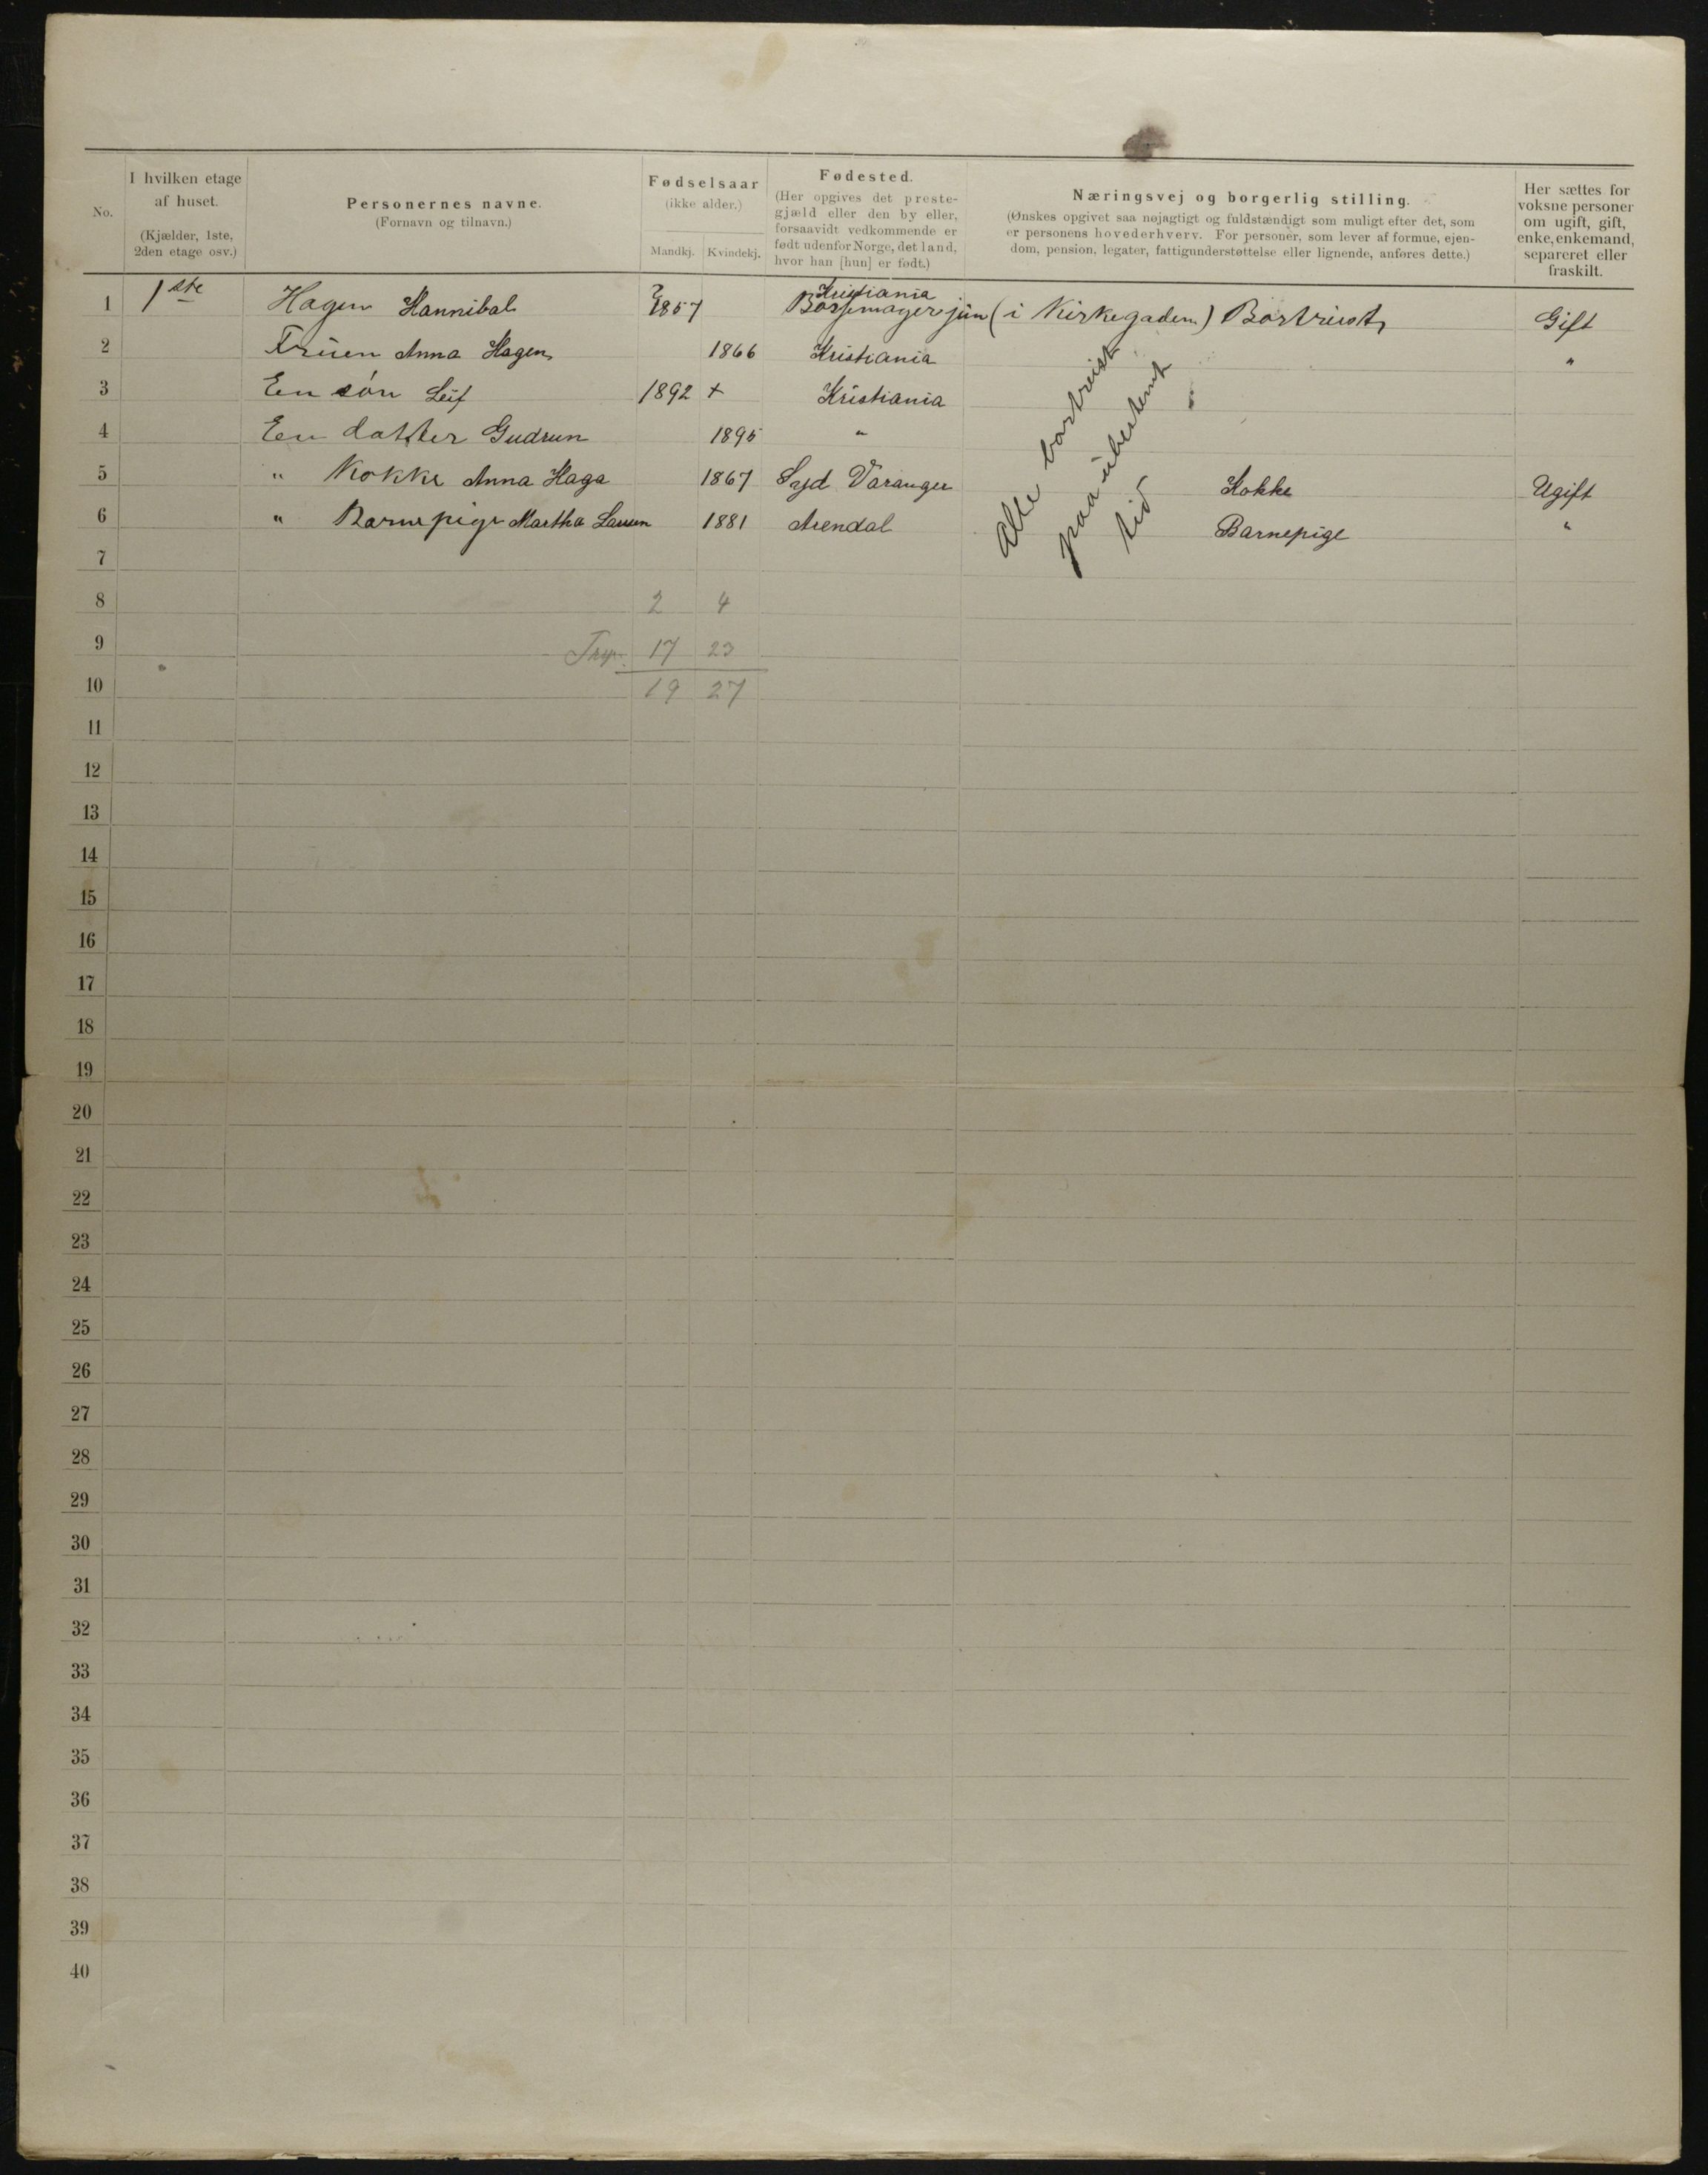 No.
I hvilken etage
af huset.
(Kjælder, 1ste,
2den etage osv.)
Personernes navne.
(Fornavn og tilnavn.)
Fødselsaar
(ikke alder.)
Mandkj. Kvindekj.
Fødested.
(Her opgives det preste-
gjæld eller den by eller,
forsaavidt vedkommende er
født udenfor Norge, det land,
hvor han [hun] er født.)
Næringsvej og borgerlig stilling.
(Ønskes opgivet saa nøjagtigt og fuldstændigt som muligt efter det, som
er personens hovederhverv. For personer, som lever af formue, ejen-
dom, pension, legater, fattigunderstøttelse eller lignende, anføres dette.)
Her sættes for
voksne personer
om ugift, gift,
enke, enkemand,
separeret eller
fraskilt.
Kristiania
1 1ste Hagen Hannibal 1857 Børsemager jun (i Kirkegaden) Bortreist, Gift
2 Fruen Anna Hagen 1866 Kristiania "
3 En søn Leif 1892 + Kristiania
4 En datter Gudrun 1895 "
5 " Kokke Anna Haga 1867 Syd Varanger Kokke Ugift
6 " Barnepige Martha Larsen 1881 Arendal Barnepige "
Alle bortreist
paa ubestemt
tid
7
8 2 4
9 17 23
10 19 27
11
12
13
14
15
16
17
18
19
20
21
22
23
24
25
26
27
28
29
30
31
32
33
34
35
36
37
38
39
40